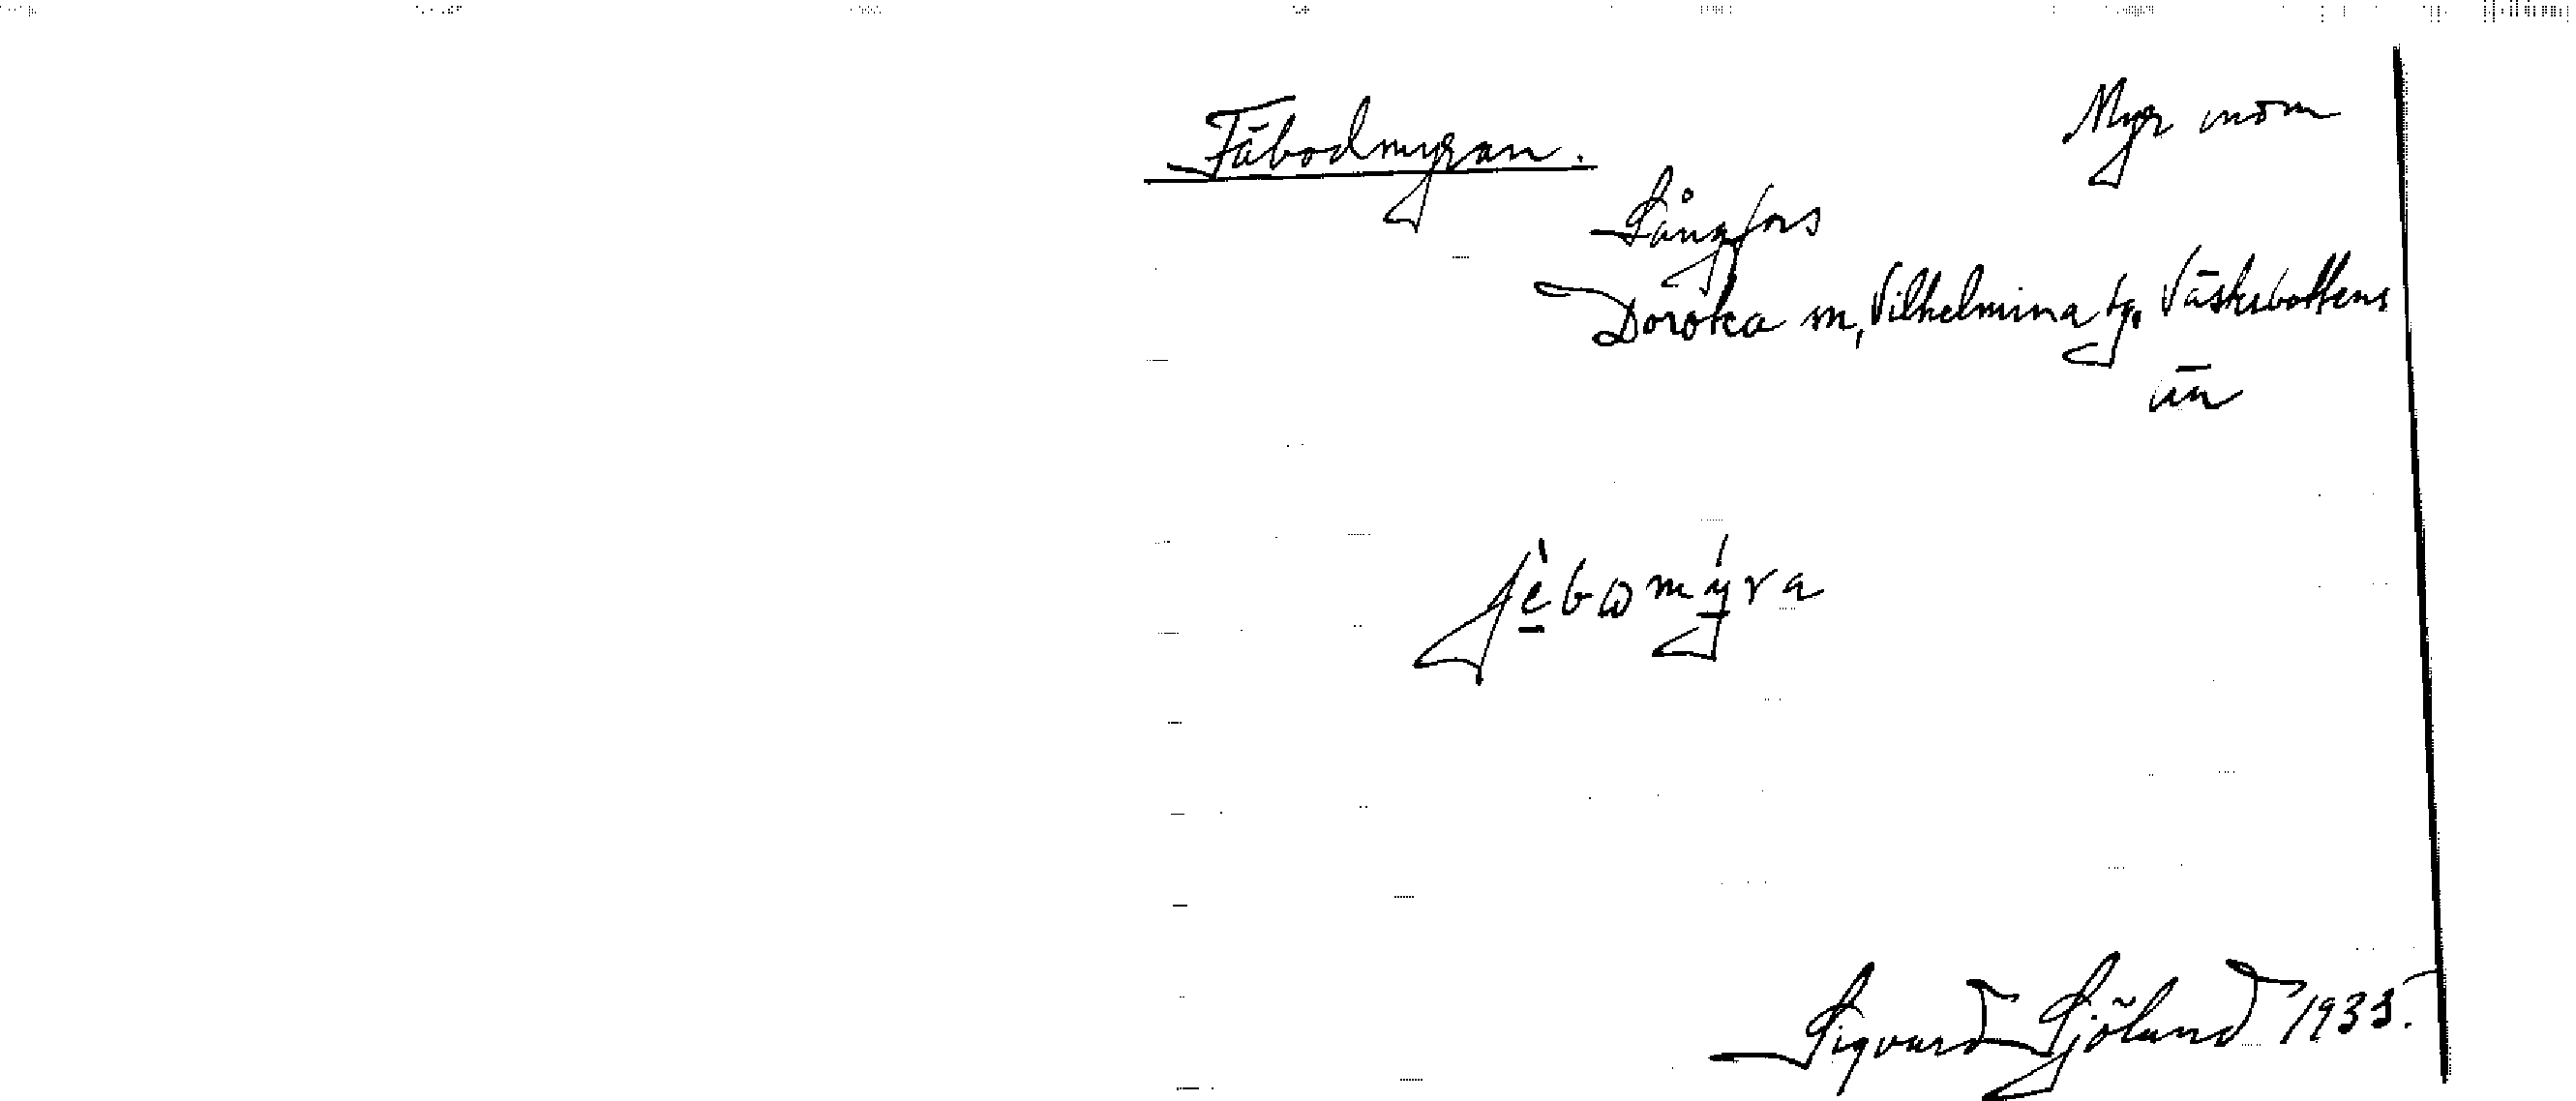 Fäbodmyran. Myr inom
Långfors
Dorotea sn, Vilhelmina tg, Västerbottens
län
fèbωmýra
Sigvard Sjölund 1935.